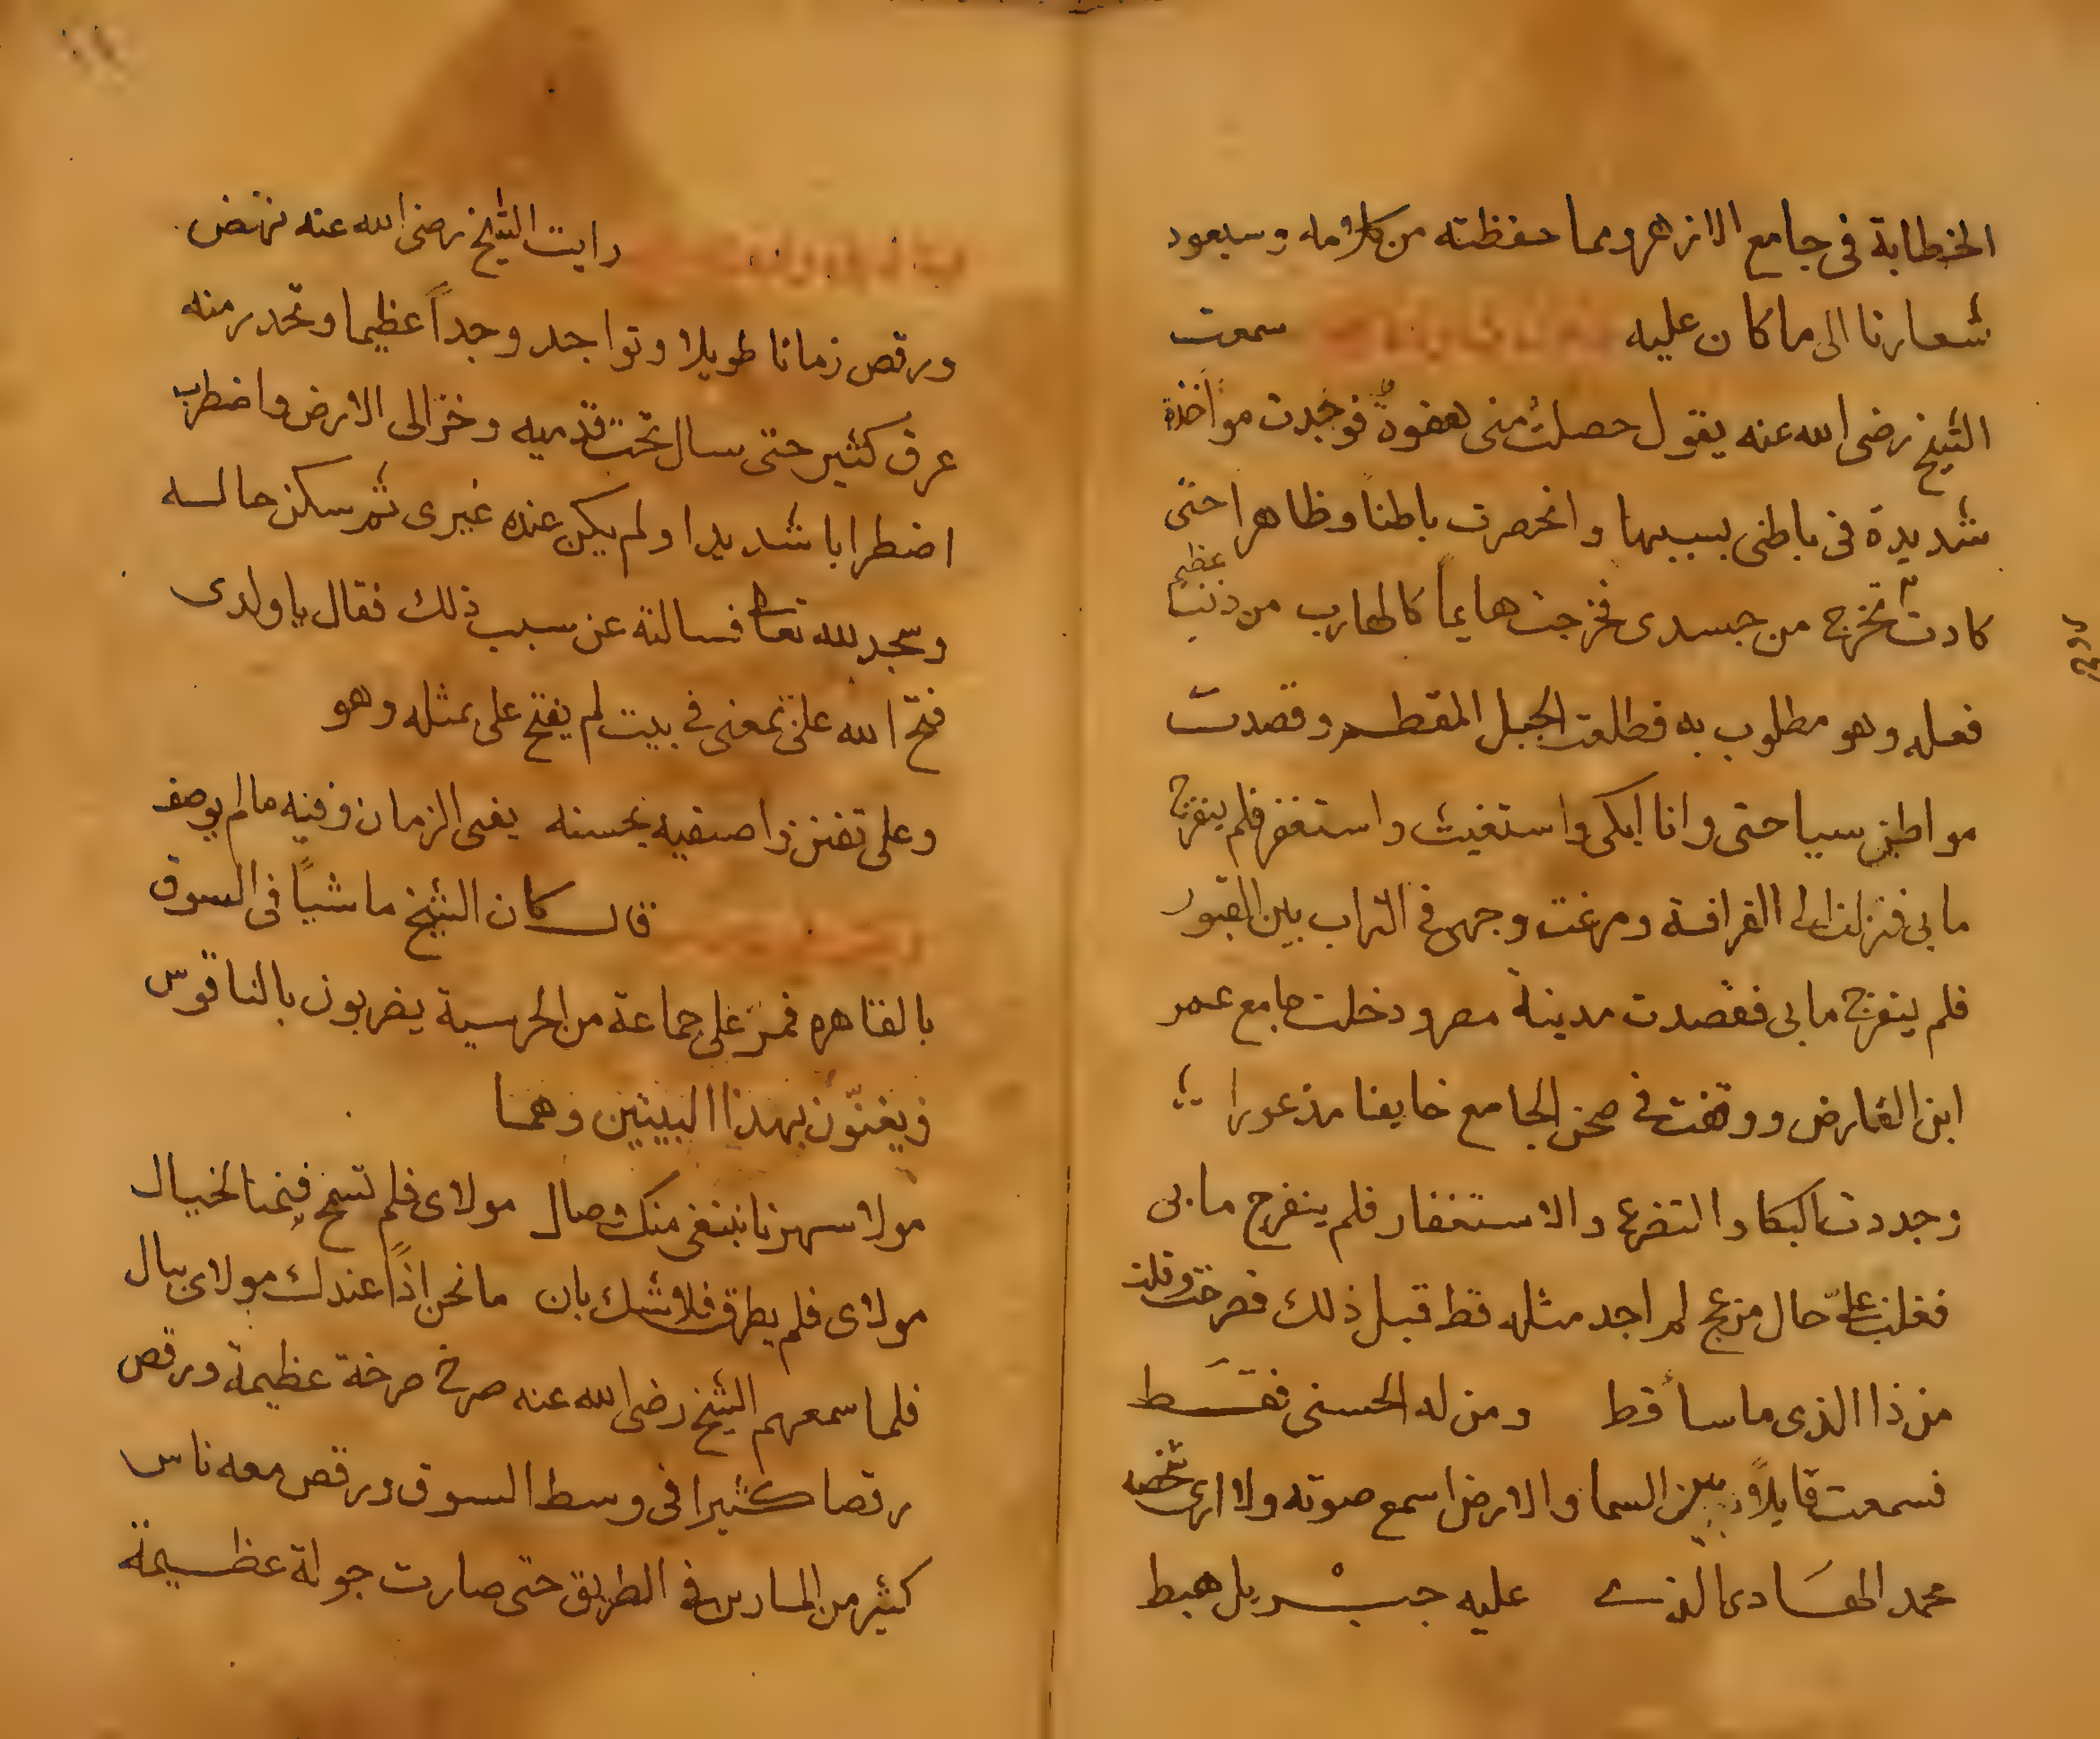 الخطابة فى جامع الازهر ومما حفظته من كلامه وسيعود
شعارنا الى ما كان عليه سمعت
الشيخ رضى الله عنه يقول حصلت منى هفوةٌ فوجدت مواخذة
شديدة فى باطنى بسببها وانحصرت باطناً وظاهرا حتى
كادت تخرج من جسدى فخرجت هايماً كالهارب من ذنب عظيم
فعله وهو مطلوب به فطلعت الجبل المقطم وقصدت
مواطن سياحتى وانا ابكى واستغيث واستغفر فلم ينفرج
ما بى فنزلت الى القرافة ومرغت وجهى فى التراب بين القبور
فلم ينفرج ما بى فقصدت مدينة مصر ودخلت جامع عمر
ابن الفارض ووقفت فى صحن الجامع خايفا مذعورا
وجددت البكا والتضرع والاستغفار فلم ينفرج ما بى
فغلب علىّ حال مزعج لم اجد مثله قط قبل ذلك فصرخت وقلت
من ذا الذى ما سأ قط ومن له الحسنى فقط
فسمعت قايلاً بين السما والارض اسمع صوته ولا ارى شخصه
محمد الهادى الذى عليه جبريل هبط
رايت الشيخ رضى الله عنه نهض
ورقص زمانا طويلا وتواجد وجداً عظيما وتحدر منه
عرق كثير حتى سال تحت قدميه وخر الى الارض واضطرب
اضطرابا شديدا ولم يكن عنده غيرى ثم سكن حاله
وسجد لله تعالى فسالته عن سبب ذلك فقال يا ولدى
فتح الله علىّ بمعنى فى بيت لم يفتح على بمثله وهو
وعلى تفنن واصفيه بحسنه يفنى الزمان وفيه ما لم يوصف
قال كان الشيخ ماشياً فى السوق
بالقاهره فمر على جماعة من الحرسية يضربون بالناقوس
ويغنّون بهذا البيتين وهما
مولا سهرنا نبتغى منك وصال مولاى فلم تسمح فنمنا لخيال
مولاى فلم يطرق فلا شك بان ما نحن اذاً عندك مولاى ببال
فلما سمعهم الشيخ رضى الله عنه صرخ صرخة عظيمة ورقص
رقصا كثيرا فى وسط السوق ورقص معه ناس
كثير من المارين فى الطريق حتى صارت جولة عظيمة